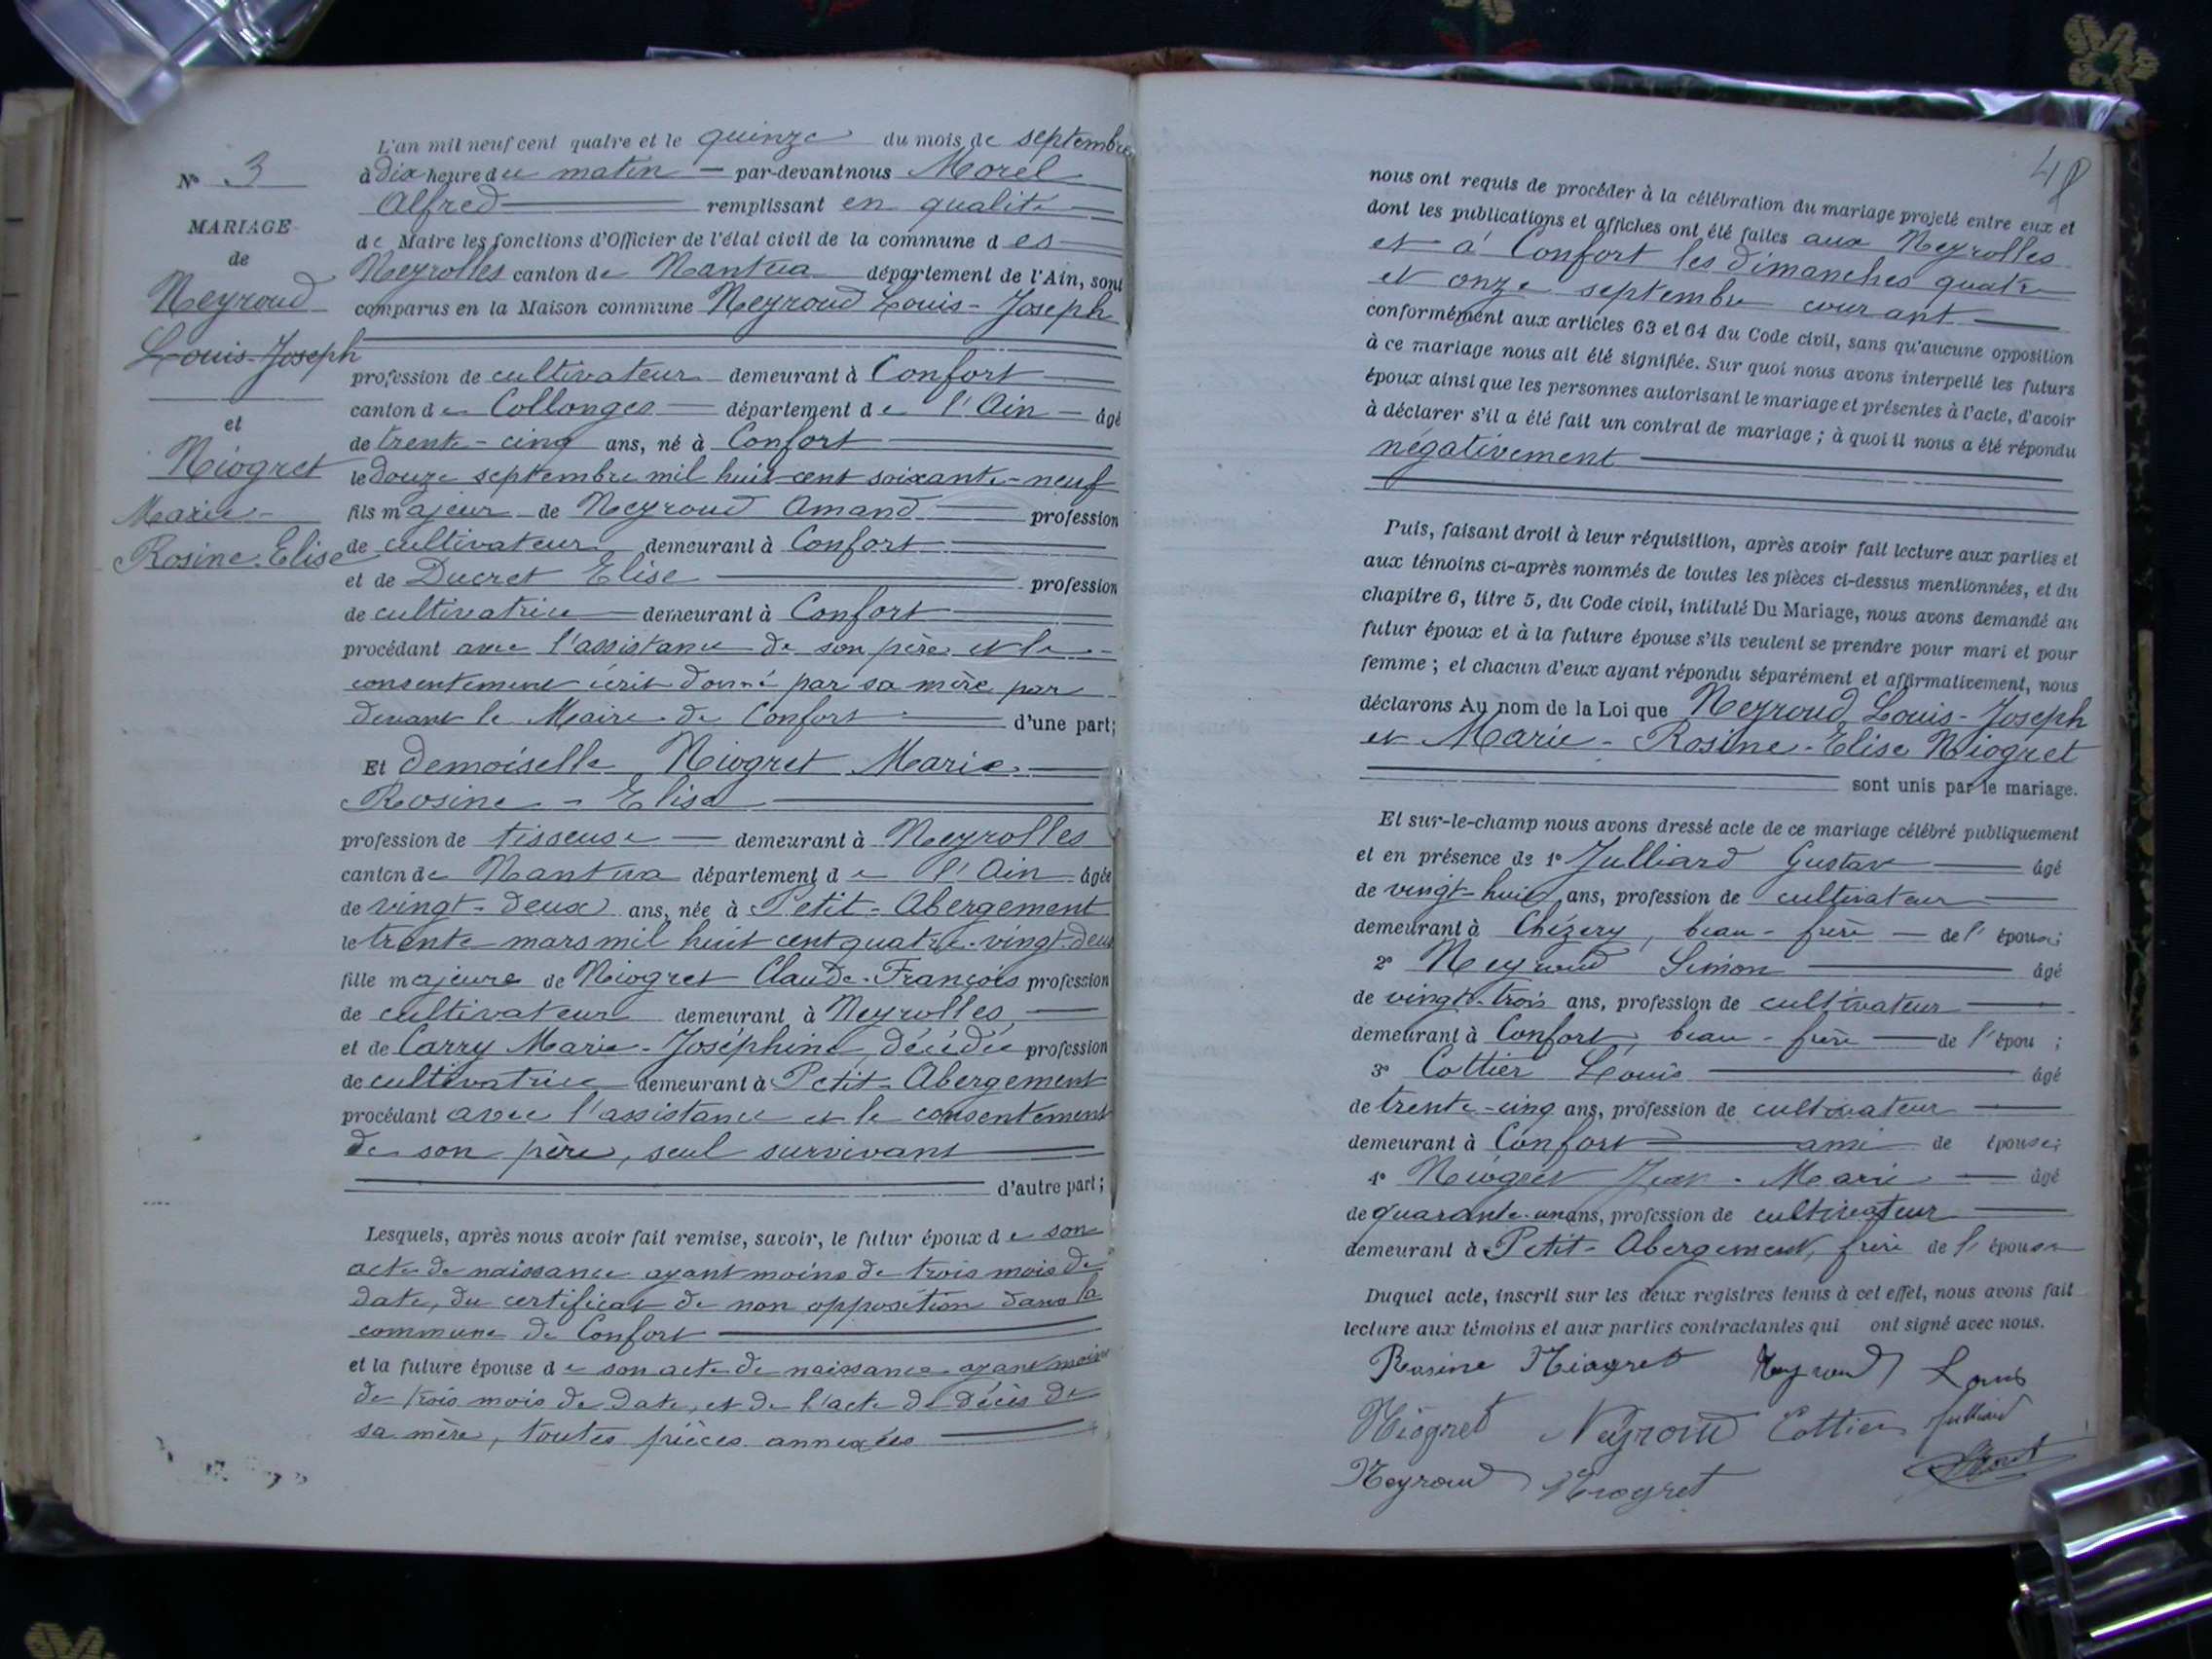 N° 3
MARIAGE
de
Neyroud
Louis-Joseph
et
Niogret
Marie-
Rosine-Elise
L'an mil neuf cent quatre et le quinze du mois de septembre
à dix heure du matin — par-devant nous Morel
Alfred — remplissant en qualité
de Maire les fonctions d'Officier de l'état civil de la commune d es
Neyrolles canton de Nantua département de l'Ain, sont
comparus en la Maison commune Neyroud Louis-Joseph
profession de cultivateur demeurant à Confort
canton de Collonges — département de l'Ain — âgé
de trente-cinq ans, né à Confort
le douze septembre mil huit cent soixante-neuf
fils majeur de Neyroud Amand — profession
de cultivateur demeurant à Confort
et de Ducret Elise — profession
de cultivatrice — demeurant à Confort
procédant avec l'assistance de son père et le
consentement écrit donné par sa mère par
devant le Maire de Confort — d'une part;
Et demoiselle Niogret Marie-
Rosine-Elise
profession de tisseuse — demeurant à Neyrolles
canton de Nantua département de l'Ain âgée
de vingt-deux ans, née à Petit-Abergement
le trente mars mil huit cent quatre-vingt-deux
fille majeure de Niogret Claude-François profession
de cultivateur demeurant à Neyrolles,
et de Carry Marie-Joséphine, décédée profession
de cultivatrice demeurant à Petit-Abergement
procédant avec l'assistance et le consentement
de son père, seul survivant
d'autre part;
Lesquels, après nous avoir fait remise, savoir, le futur époux de son
acte de naissance ayant moins de trois mois de
date, du certificat de non opposition dans la
commune de Confort
et la future épouse de son acte de naissance ayant moins
de trois mois de date, et de l'acte de décès de
sa mère, toutes pièces annexées
48
nous ont requis de procéder à la célébration du mariage projeté entre eux et
dont les publications et affiches ont été faites aux Neyrolles
et à Confort les dimanches quatre
et onze septembre courant
conformément aux articles 63 et 64 du Code civil, sans qu'aucune opposition
à ce mariage nous ait été signifiée. Sur quoi nous avons interpellé les futurs
époux ainsi que les personnes autorisant le mariage et présentes à l'acte, d'avoir
à déclarer s'il a été fait un contrat de mariage ; à quoi il nous a été répondu
négativement
Puis, faisant droit à leur réquisition, après avoir fait lecture aux parties et
aux témoins ci-après nommés de toutes les pièces ci-dessus mentionnées, et du
chapitre 6, titre 5, du Code civil, intitulé Du Mariage, nous avons demandé au
futur époux et à la future épouse s'ils veulent se prendre pour mari et pour
femme ; et chacun d'eux ayant répondu séparément et affirmativement, nous
déclarons Au nom de la Loi que Neyroud Louis-Joseph
et Marie-Rosine-Elise Niogret
sont unis par le mariage.
Et sur-le-champ nous avons dressé acte de ce mariage célébré publiquement
et en présence de 1° Julliard Gustave — âgé
de vingt-huit ans, profession de cultivateur
demeurant à Chézery, beau-frère — de l'épouse;
2° Neyroud Simon — âgé
de vingt-trois ans, profession de cultivateur
demeurant à Confort, beau-frère — de l'épou ;
3° Cottier Louis — âgé
de trente-cinq ans, profession de cultivateur
demeurant à Confort — ami de épouse;
4° Niogret Jean-Marie — âgé
de quarante-un ans, profession de cultivateur
demeurant à Petit-Abergement, frère de l'épouse
Duquel acte, inscrit sur les deux registres tenus à cet effet, nous avons fait
lecture aux témoins et aux parties contractantes qui ont signé avec nous.
Rosine Niogret Neyroud Louis
Niogret Neyroud Cottier Julliard
Neyroud Niogret